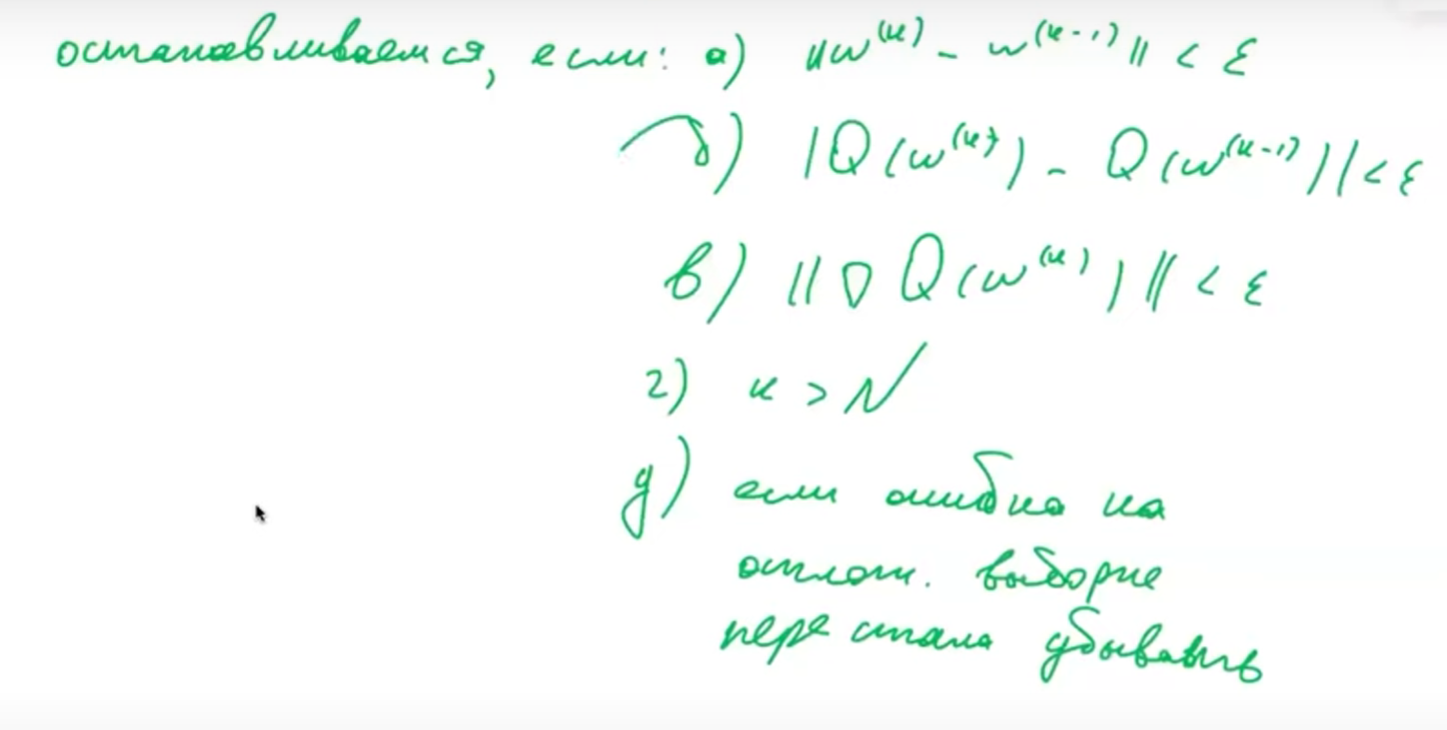 останавливаемся, если: а) ||w^(k) - w^(k-1)|| < ε
б) |Q(w^(k)) - Q(w^(k-1))| < ε
в) ||∇Q(w^(k))|| < ε
г) k > N
д) если ошибка на
отлож. выборке
перестала убывать